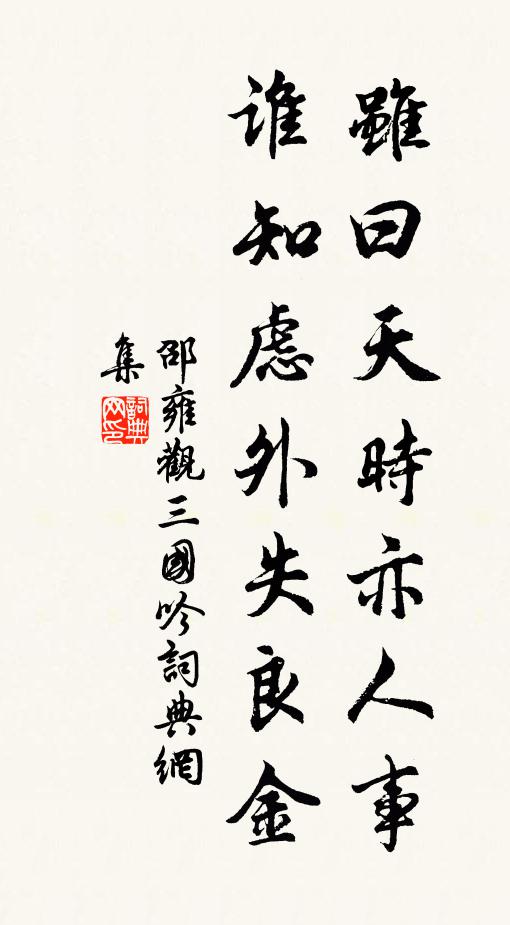 雖曰天時亦人事
誰知慮外失良金
邵雍觀三國吟詞典網
集
詞典
网印